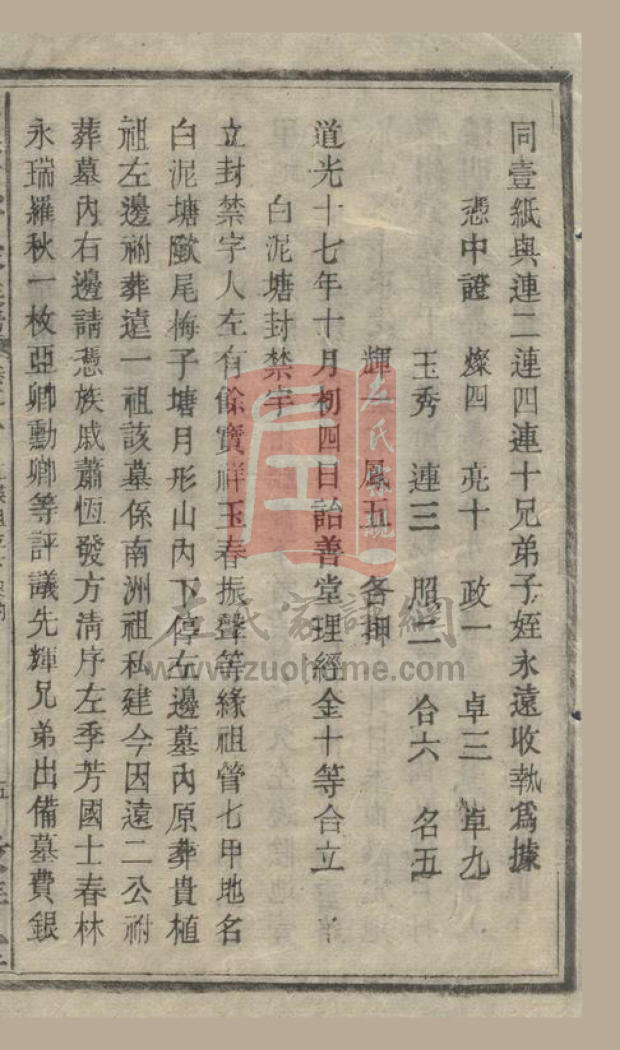 同壹紙與連二連四連十兄弟子姪永遠收執爲據
憑中證 燦四 亮十 政一 卓三 卓九
玉秀 連三 照二 合六 名五
輝一 鳳五 各押
道光十七年十月初四日詒善堂理經金十等合立
白泥塘封禁字
立封禁字人左有餘寶祥玉春振聲等緣祖管七甲地名
白泥塘歐尾梅子塘月形山內下停左邊墓內原葬貴植
祖左邊祔葬遠一祖該墓係南洲祖私建今因遠二公祔
葬墓內右邊請憑族戚蕭恆發方清序左季芳國士春林
永瑞羅秋一枚亞卿勳卿等評議先輝兄弟出備墓費銀
左氏家譜網
www.zuohome.com